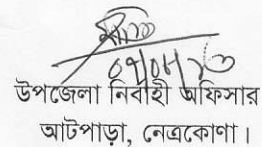 উপজেলা নির্বাহী অফিসার
আটপাড়া, নেত্রকোণা।